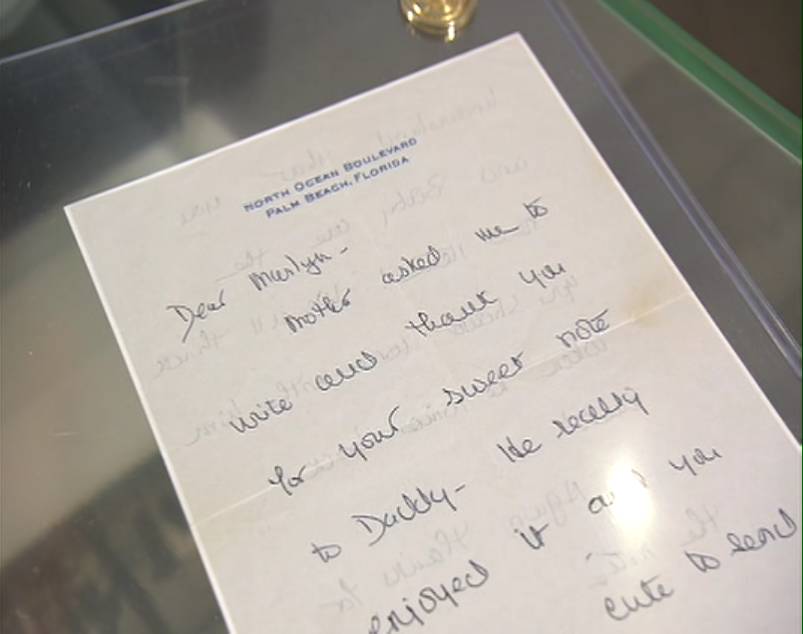 NORTH OCEAN BOULEVARD
PALM BEACH, FLORIDA
Dear Marilyn -
Mother asked me to
write and thank you
for your sweet note
to Daddy - He really
enjoyed it and you
cute to send